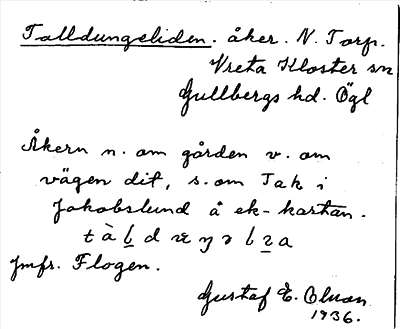 Talldungeliden. åker. N. Torp.
Vreta Kloster sn
Gullbergs hd. Ögl
Åkern n. om gården v. om
vägen dit, s. om Tak i
Jakobslund å ek-kartan.
Jmfr. Flogen.
Gustaf E. Olson.
1936.